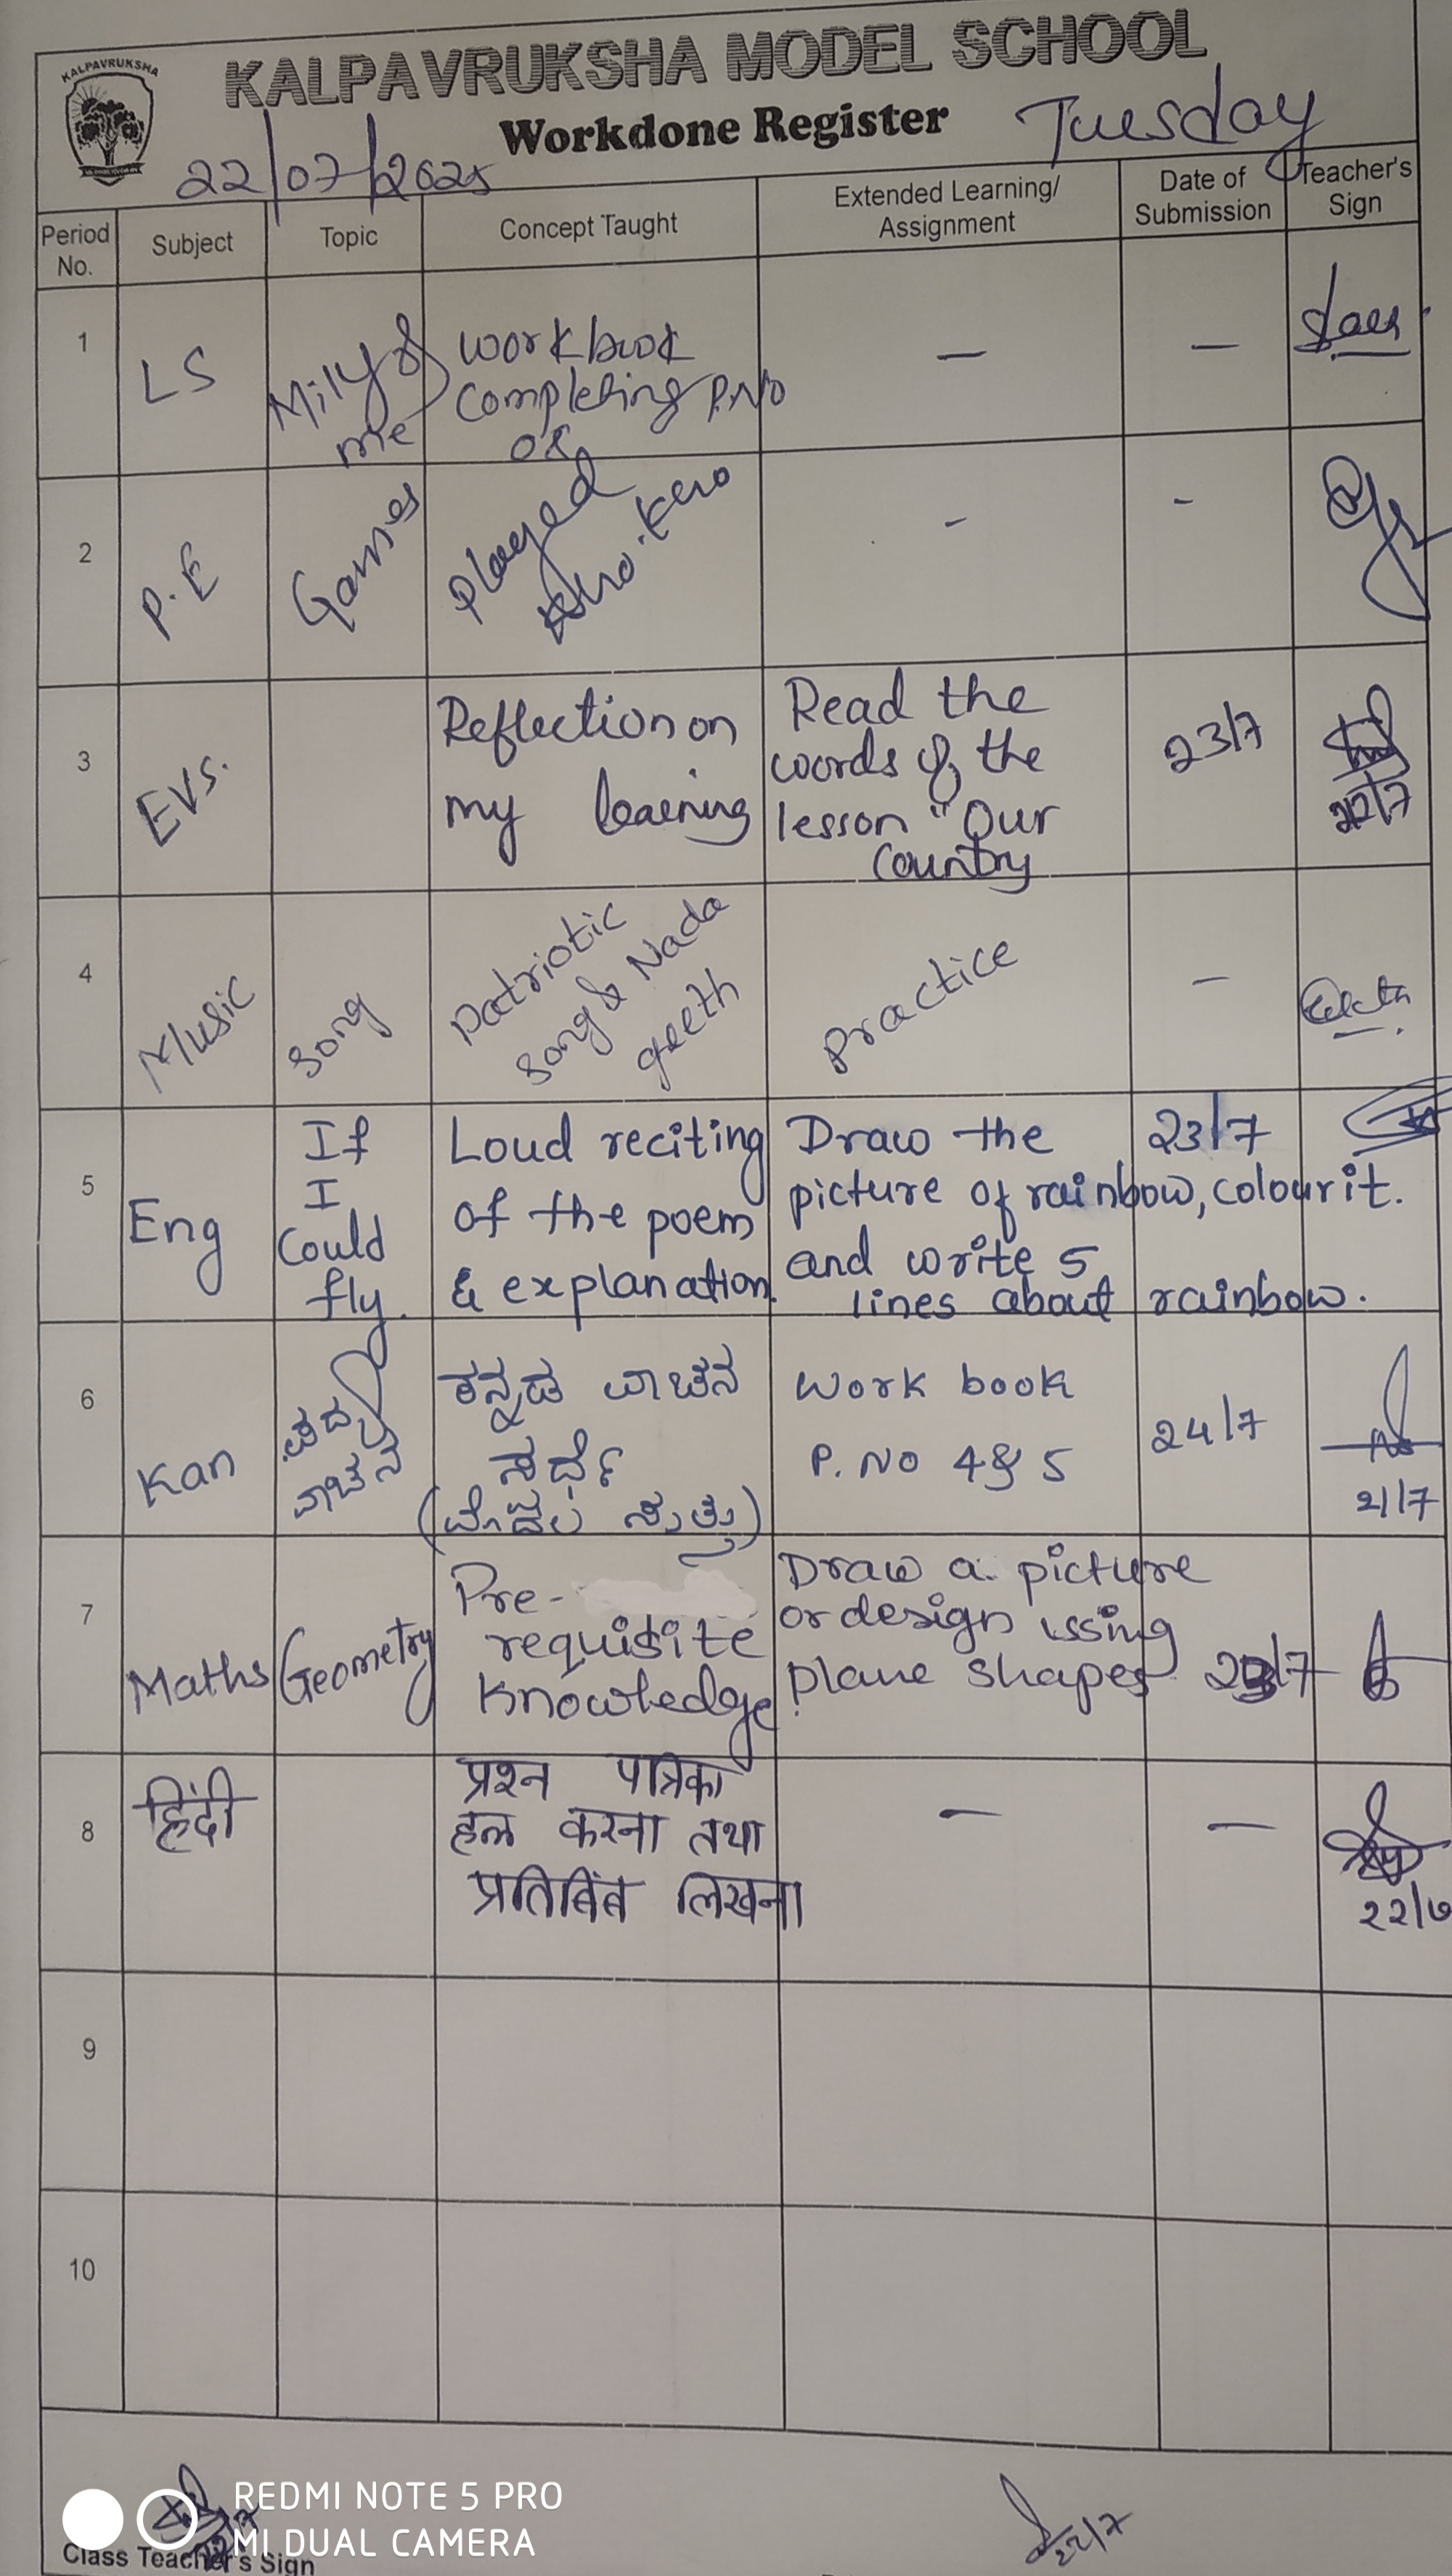 KALPAVRUKSHA
KALPAVRUKSHA MODEL SCHOOL
Workdone Register
Tuesday
22/07/2025
Period No.
Subject
Topic
Concept Taught
Extended Learning/
Assignment
Date of
Submission
Teacher's
Sign
1
LS
Mily &
me
work book
completing P.No
08
—
—
2
P.E
Games
played
kho-kho
-
-
3
EVS.
Reflection on
my learning
Read the
words of the
lesson "Our
Country
23/7
22/7
4
Music
Song
Patriotic
Song & Nada
geeth
Practice
-
5
Eng
If
I
Could
fly.
Loud reciting
of the poem
& explanation.
Draw the
picture of rainbow, colour it.
and write 5
lines about rainbow.
23/7
6
Kan
ಪದ್ಯ
ವಾಚನ
ಕನ್ನಡ ವಾಚನ
ಸ್ಪರ್ಧೆ
(ಮೊದಲ ಸುತ್ತು)
Work book
P. NO 4 & 5
24/7
21/7
7
Maths
Geometry
Pre-
requisite
knowledge.
Draw a picture
or design ussing
plane shapes
23/7
8
हिंदी
प्रश्न पत्रिका
हल करना तथा
प्रतिबिंब लिखना
—
—
२२/७
9
10
REDMI NOTE 5 PRO
MI DUAL CAMERA
Class Teacher's Sign
22/7